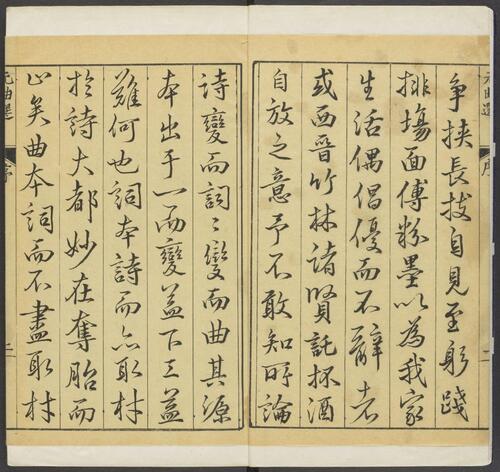 元曲選
序
二
爭挾長技自見至躬踐
排塲面傅粉墨以為我家
生活偶倡優而不辭者
或西晉竹林諸賢託杯酒
自放之意予不敢知所論
詩變而詞〻變而曲其源
本出于一而變益下工益
難何也詞本詩而亦取材
於詩大都妙在奪胎而
止矣曲本詞而不盡取材
元曲選
序
二